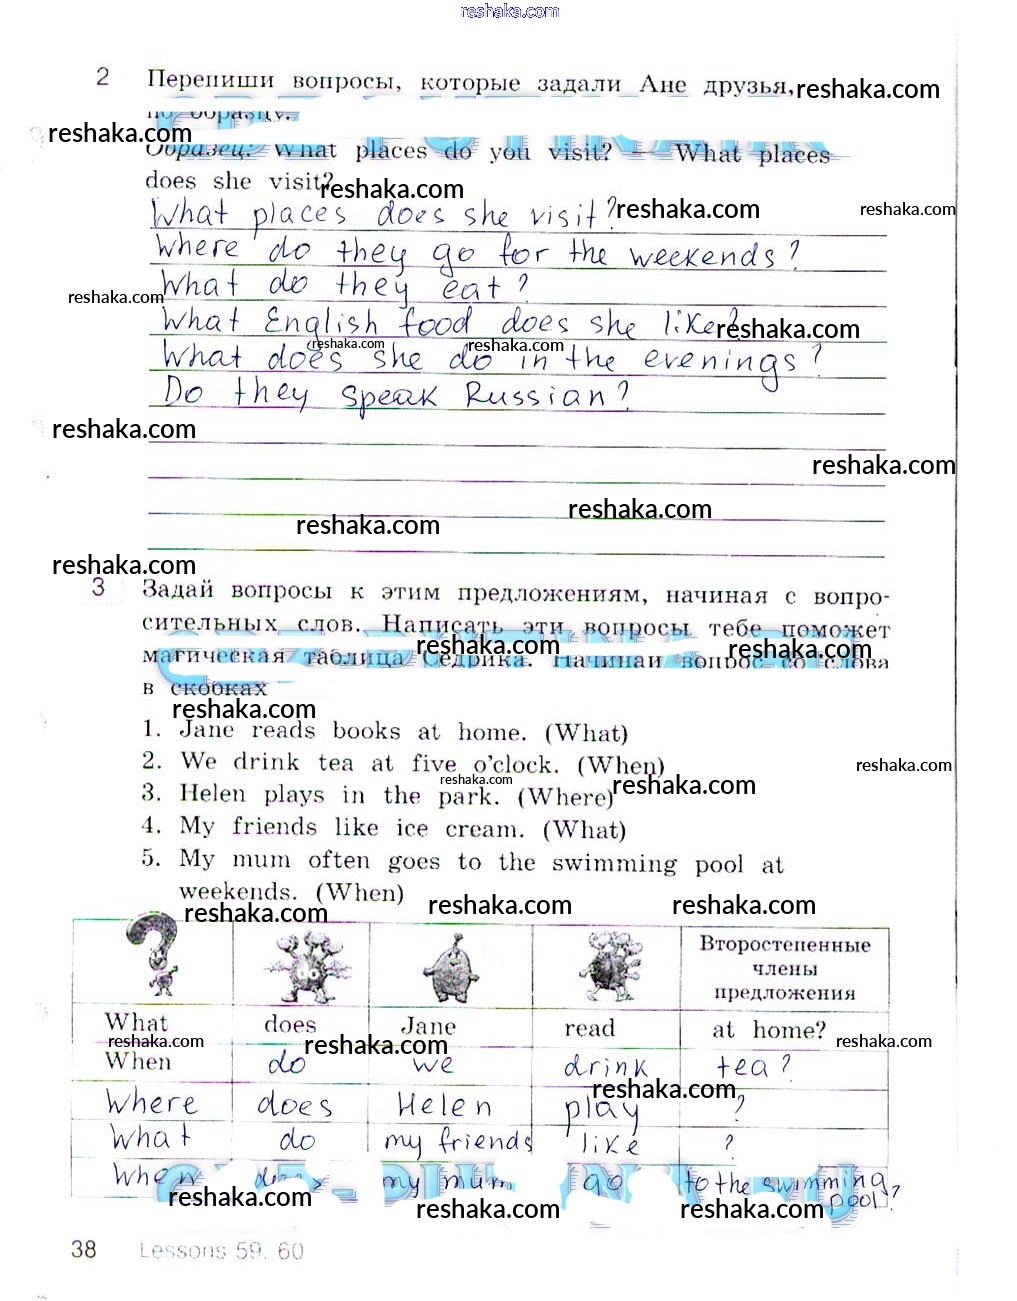 reshaka.com
2 Перепиши вопросы, которые задали Ане друзья, reshaka.com
по образцу.
reshaka.com
Образец: What places do you visit? — What places
does she visit? reshaka.com
What places does she visit? reshaka.com reshaka.com
Where do they go for the weekends?
What do they eat?
reshaka.com
What English food does she like? reshaka.com
reshaka.com reshaka.com
What does she do in the evenings?
Do they speak Russian?
reshaka.com
reshaka.com
reshaka.com
reshaka.com
reshaka.com
3 Задай вопросы к этим предложениям, начиная с вопро-
сительных слов. Написать эти вопросы тебе поможет
reshaka.com reshaka.com
магическая таблица Седрика. Начинай вопрос со слова
в скобках
reshaka.com
1. Jane reads books at home. (What)
2. We drink tea at five o'clock. (When)
reshaka.com
reshaka.com reshaka.com
3. Helen plays in the park. (Where)
4. My friends like ice cream. (What)
5. My mum often goes to the swimming pool at
weekends. (When)
reshaka.com reshaka.com reshaka.com
Второстепенные
члены
предложения
What does Jane read at home?
reshaka.com reshaka.com reshaka.com
When do we drink tea?
reshaka.com
Where does Helen play ?
What do my friends like ?
When does my mum go to the swimming
pool?
reshaka.com reshaka.com reshaka.com
38 Lessons 59, 60